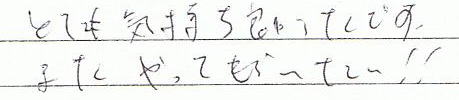 とても気持ち良かったです。
またやってもらいたい!!